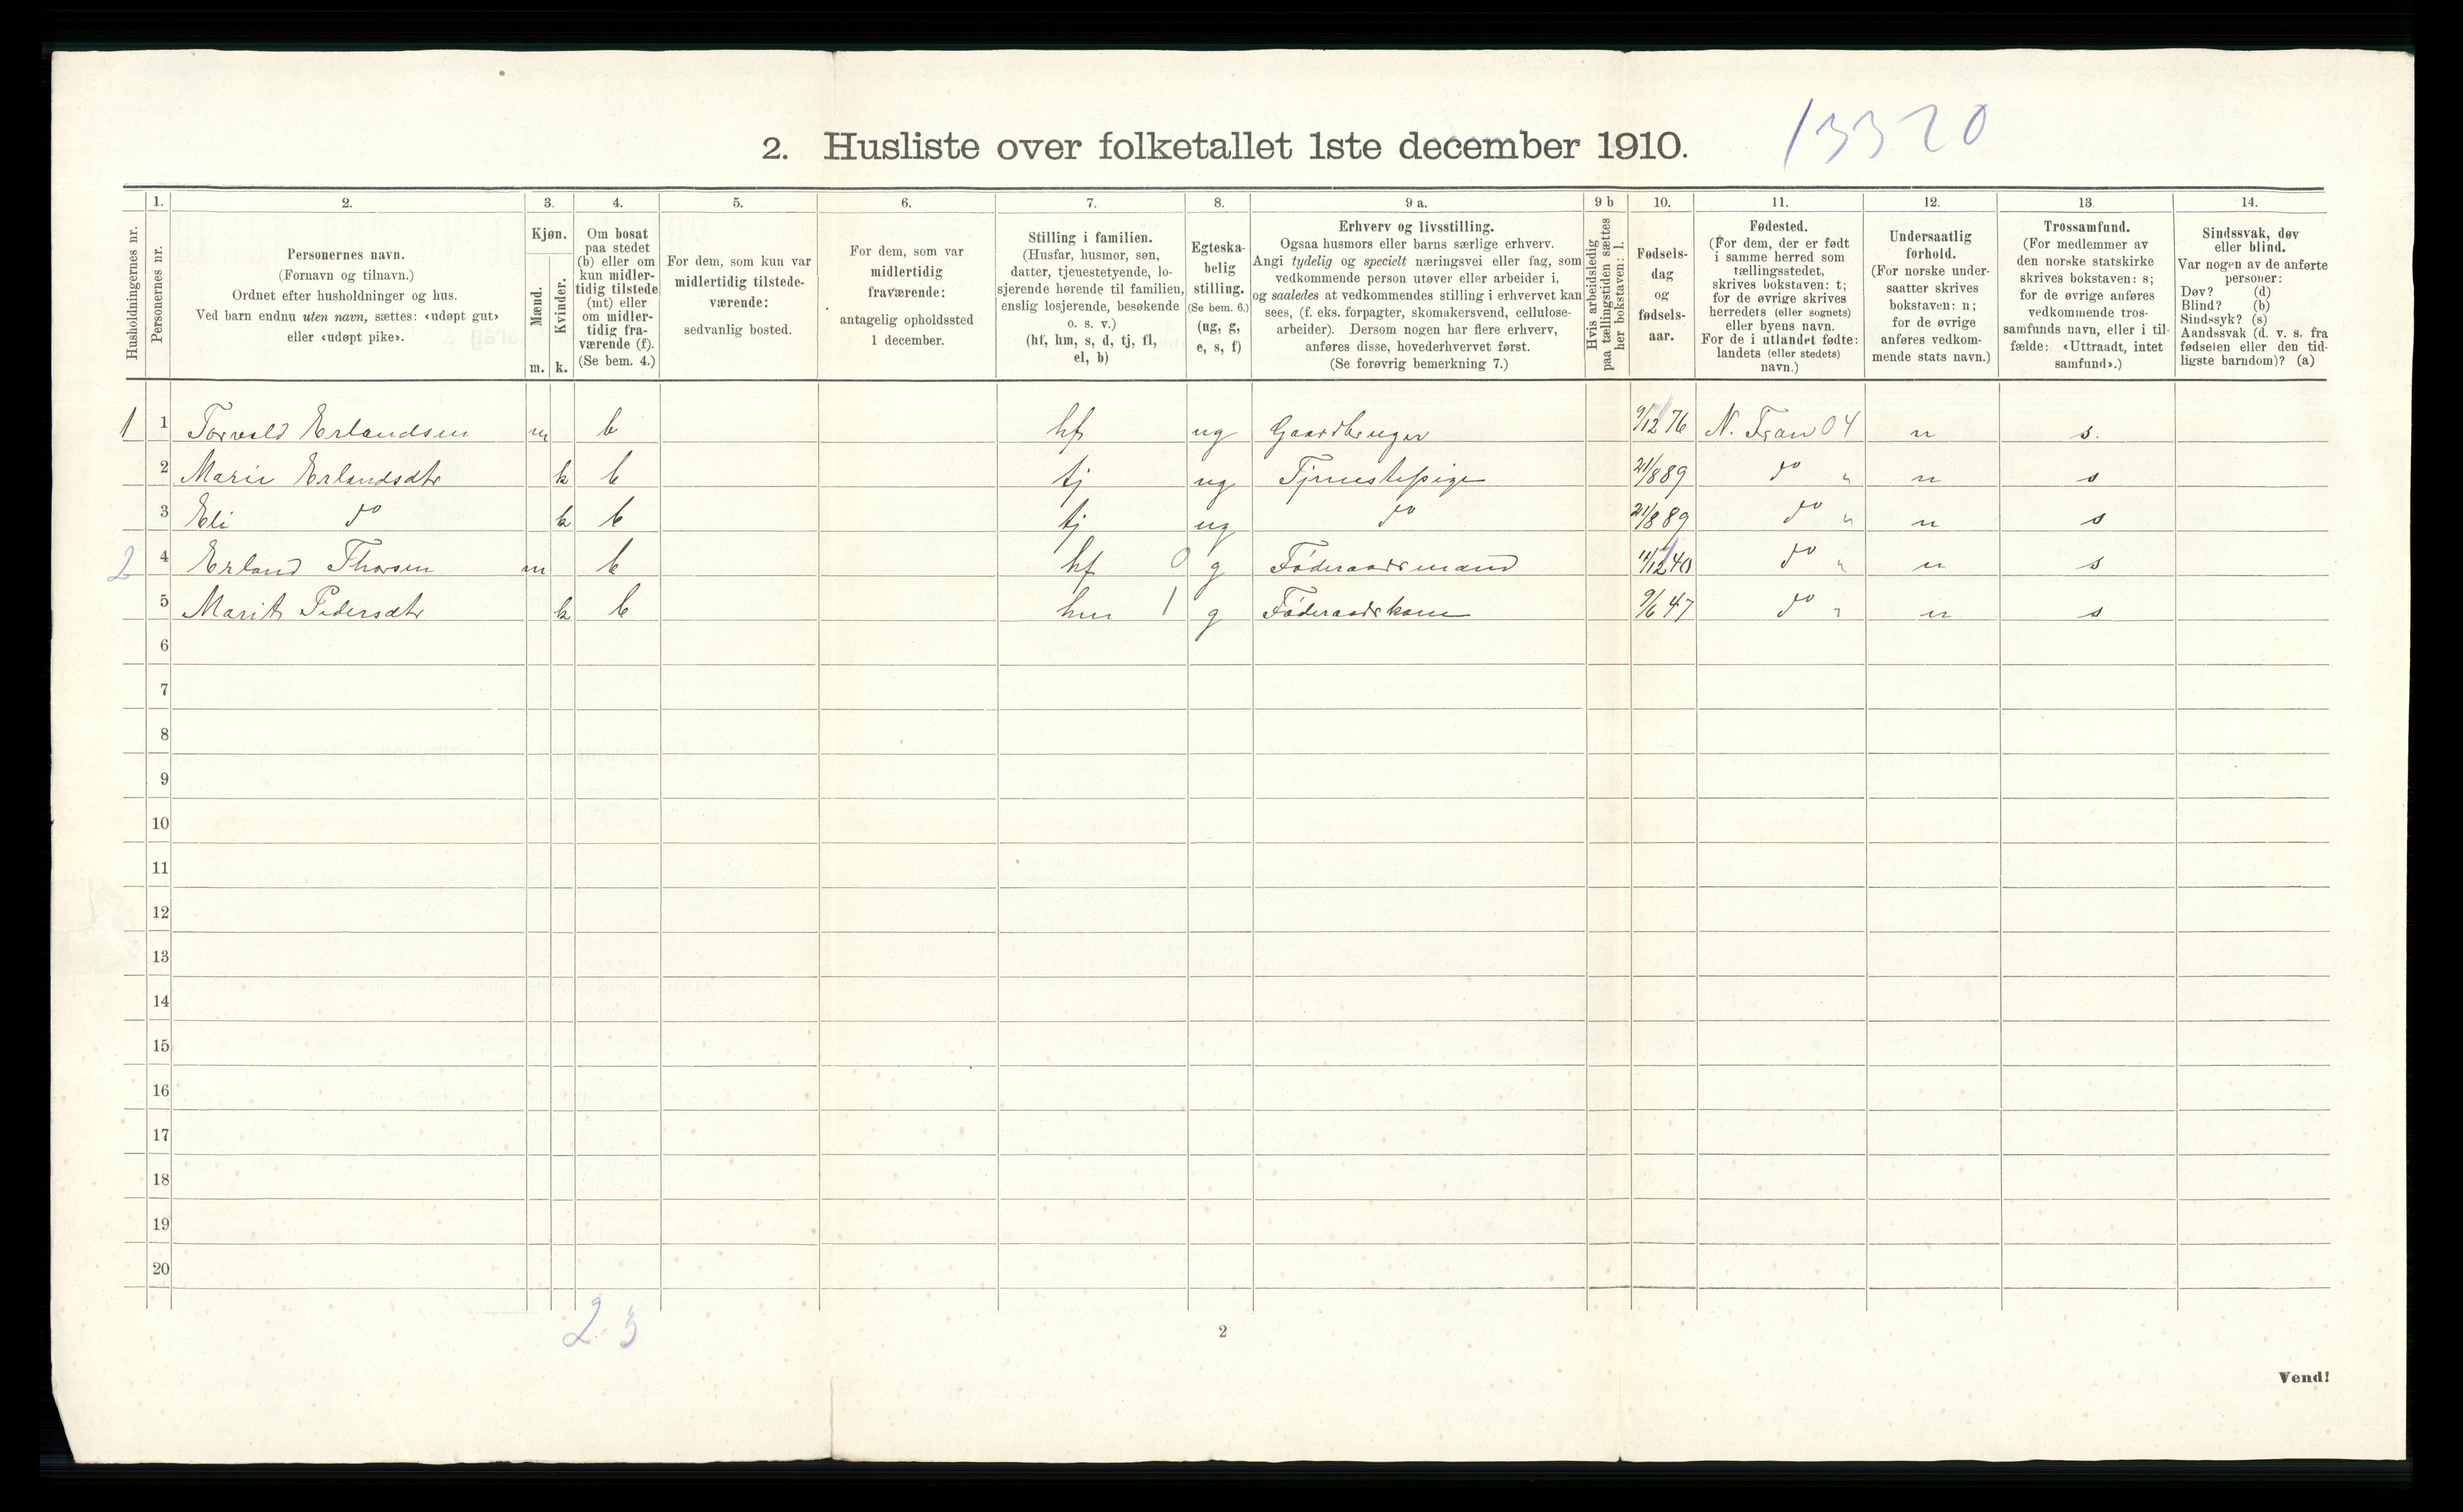 2. Husliste over folketallet 1ste december 1910.
13320
1. 2. 3. 4. 5. 6. 7. 8. 9 a. 9 b 10. 11. 12. 13. 14.
Husholdningernes nr.
Personernes nr.
Personernes navn.
(Fornavn og tilnavn.)
Ordnet efter husholdninger og hus.
Ved barn endnu uten navn, sættes: «udøpt gut»
eller «udøpt pike».
Kjøn.
Mænd.
m.
Kvinder.
k.
Om bosat
paa stedet
(b) eller om
kun midler-
tidig tilstede
(mt) eller
om midler-
tidig fra-
værende (f).
(Se bem. 4.)
For dem, som kun var
midlertidig tilstede-
værende:
sedvanlig bosted.
For dem, som var
midlertidig
fraværende:
antagelig opholdssted
1 december.
Stilling i familien.
(Husfar, husmor, søn,
datter, tjenestetyende, lo-
sjerende hørende til familien,
enslig losjerende, besøkende
o. s. v.)
(hf, hm, s, d, tj, fl,
el, b)
Egteska-
belig
stilling.
(Se bem. 6.)
(ug, g,
e, s, f)
Erhverv og livsstilling.
Ogsaa husmors eller barns særlige erhverv.
Angi tydelig og specielt næringsvei eller fag, som
vedkommende person utøver eller arbeider i,
og saaledes at vedkommendes stilling i erhvervet kan
sees, (f. eks. forpagter, skomakersvend, cellulose-
arbeider). Dersom nogen har flere erhverv,
anføres disse, hovederhvervet først.
(Se forøvrig bemerkning 7.)
Hvis arbeidsledig
paa tællingstiden sættes
her bokstaven: l.
Fødsels-
dag
og
fødsels-
aar.
Fødested.
(For dem, der er født
i samme herred som
tællingsstedet,
skrives bokstaven: t;
for de øvrige skrives
herredets (eller sognets)
eller byens navn.
For de i utlandet fødte:
landets (eller stedets)
navn.)
Undersaatlig
forhold.
(For norske under-
saatter skrives
bokstaven: n;
for de øvrige
anføres vedkom-
mende stats navn.)
Trossamfund.
(For medlemmer av
den norske statskirke
skrives bokstaven: s;
for de øvrige anføres
vedkommende tros-
samfunds navn, eller i til-
fælde: «Uttraadt, intet
samfund».)
Sindssvak, døv
eller blind.
Var nogen av de anførte
personer:
Døv? (d)
Blind? (b)
Sindssyk? (s)
Aandssvak (d. v. s. fra
fødselen eller den tid-
ligste barndom)? (a)
1 1 Torvald Erlandsen m b hf ug Gaardbruger 9/12 76 N. Fron 04 n s.
2 Marie Erlandsdtr k b tj ug Tjenestepige 21/8 89 do " n s
3 Eli do k b tj ug do 21/8 89 do " n s
2 4 Erland Thorsen m b hf 0 g Føderaadsmand 11/12 40 do " n s
5 Marit Pedersdtr k b hm 1 g Føderaadskone 9/6 47 do " n s
6
7
8
9
10
11
12
13
14
15
16
17
18
19
20
2-3
2
Vend!